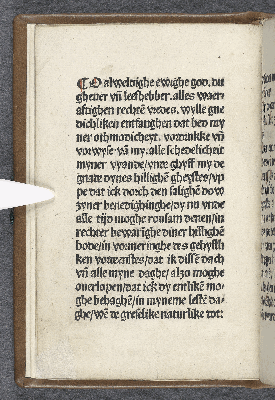 O alweldighe ewighe god, du
ghever vñ leefhebber. alles waer-
aftighen rechtē vredes. wylle gne
dichliken entfanghen dat bed my
ner othmodicheyt. vorwrikke vñ
vorwyse vā my. alle schedelicheit
myner vyande/vnde ghyff my de
gnade dynes hillighē gheystes/vp
pe dat ick dorch den salighē dow
dyner benedighinghe/dy nu vnde
alle tijd moghe volsam denen/in
rechter bewarighe diner hillighē
bode/in vormeringhe des gheystli
ken vorvenstes/dat ik dissē dach
vñ alle myne daghe/alzo moghe
overlopen/dat ick dy entlikē mo-
ghe behaghē/in myneme lestē da-
ghe/wē de greselike naturlike dot: